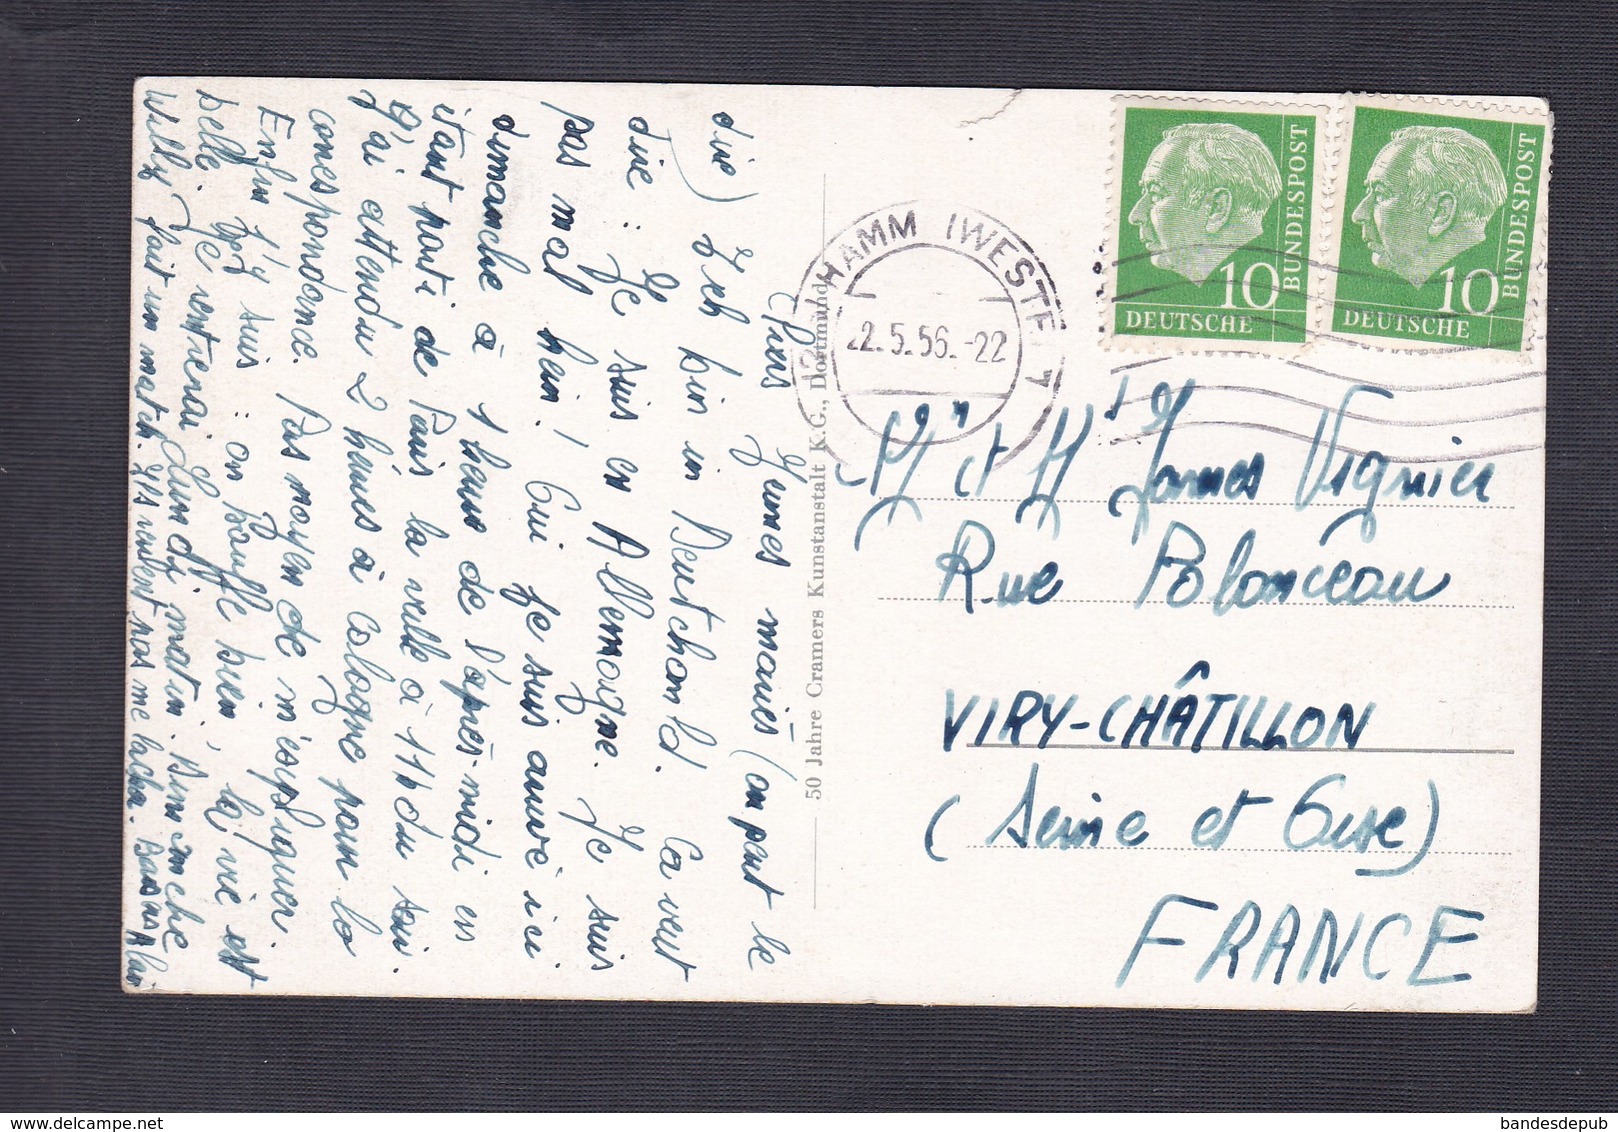 Chers Jeunes mariés (on peut le
dire) Ich bin in Deutchonld. Ca veut
dire : Je suis en Allemagne. Je suis
pas mal hein ! Oui je suis arrivé ici
dimanche à 1 heure de l'après-midi en
étant parti de Paris la veille à 11h du soir.
J'ai attendu 2 heures à Cologne pour la
correspondance. Pas moyen de m'expliquer.
Enfin j'y suis : on bouffe bien, la vie est
belle. Je rentrerai Lundi matin. Dimanche
Willy fait un match. Ils veulent pas me lacher. Alain
50 Jahre Cramers Kunstanstalt K.G., Dortmund
HAMM (WESTF) 1
2.5.56.-22
10
DEUTSCHE
BUNDESPOST
10
DEUTSCHE
BUNDESPOST
Mr et Me James Vignier
Rue Polonceau
VIRY-CHÂTILLON
(Seine et Oise)
FRANCE
www.delcampe.net
bandesdepub